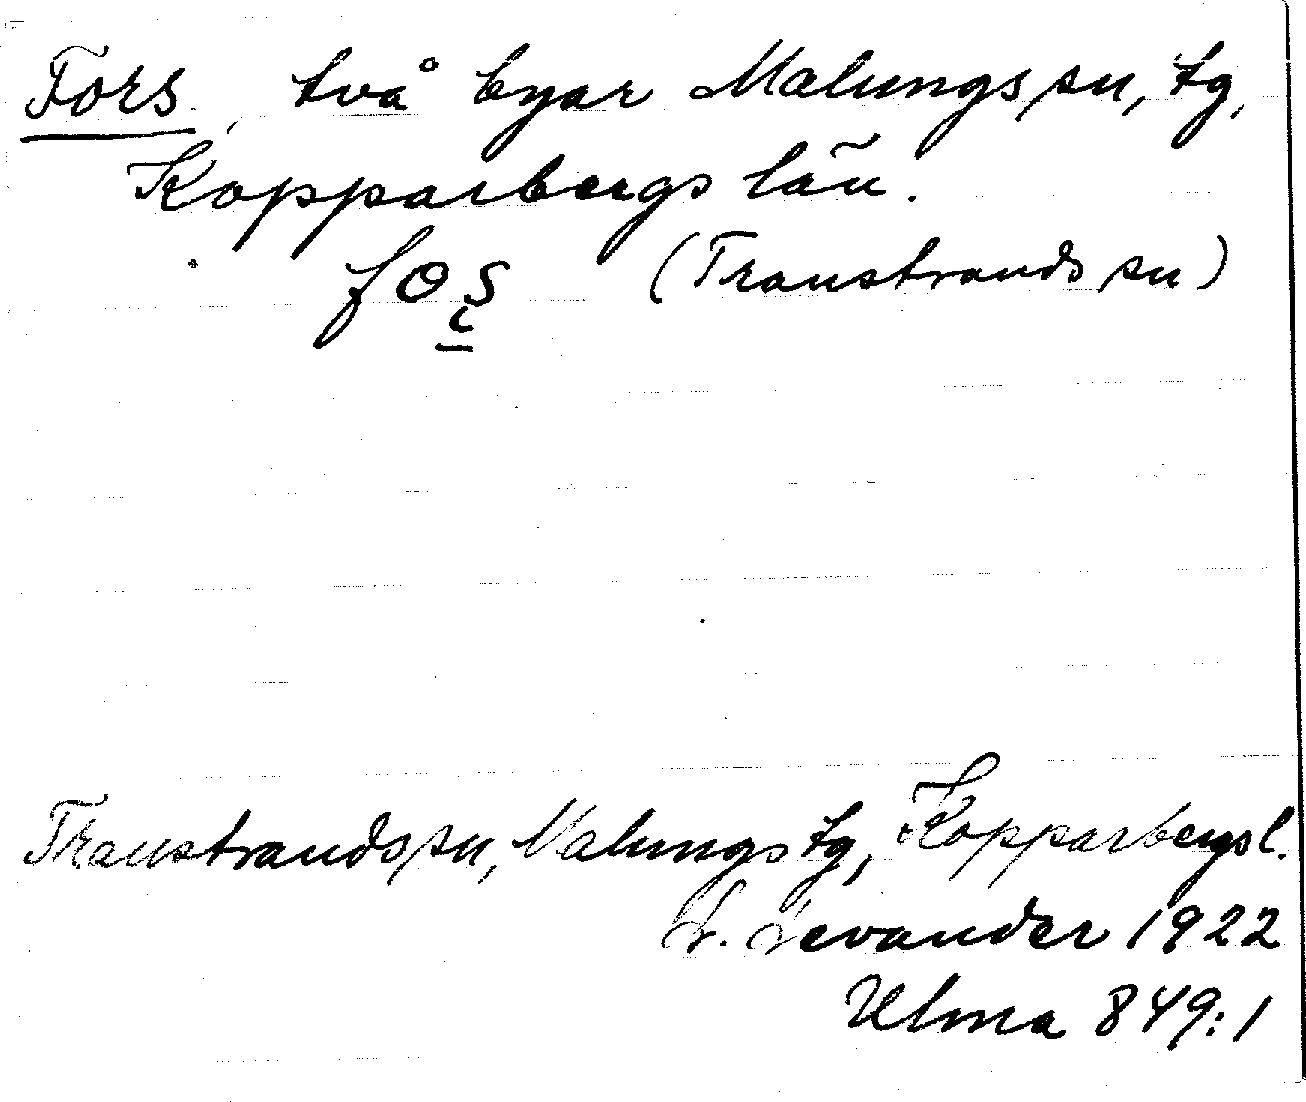 Fors, två byar Malungs sn, tg,
Kopparbergs län.
(Transtrands sn)
Transtrands sn, Malungs tg, Kopparbergs l.
L. Levander 1922
Ulma 849:1